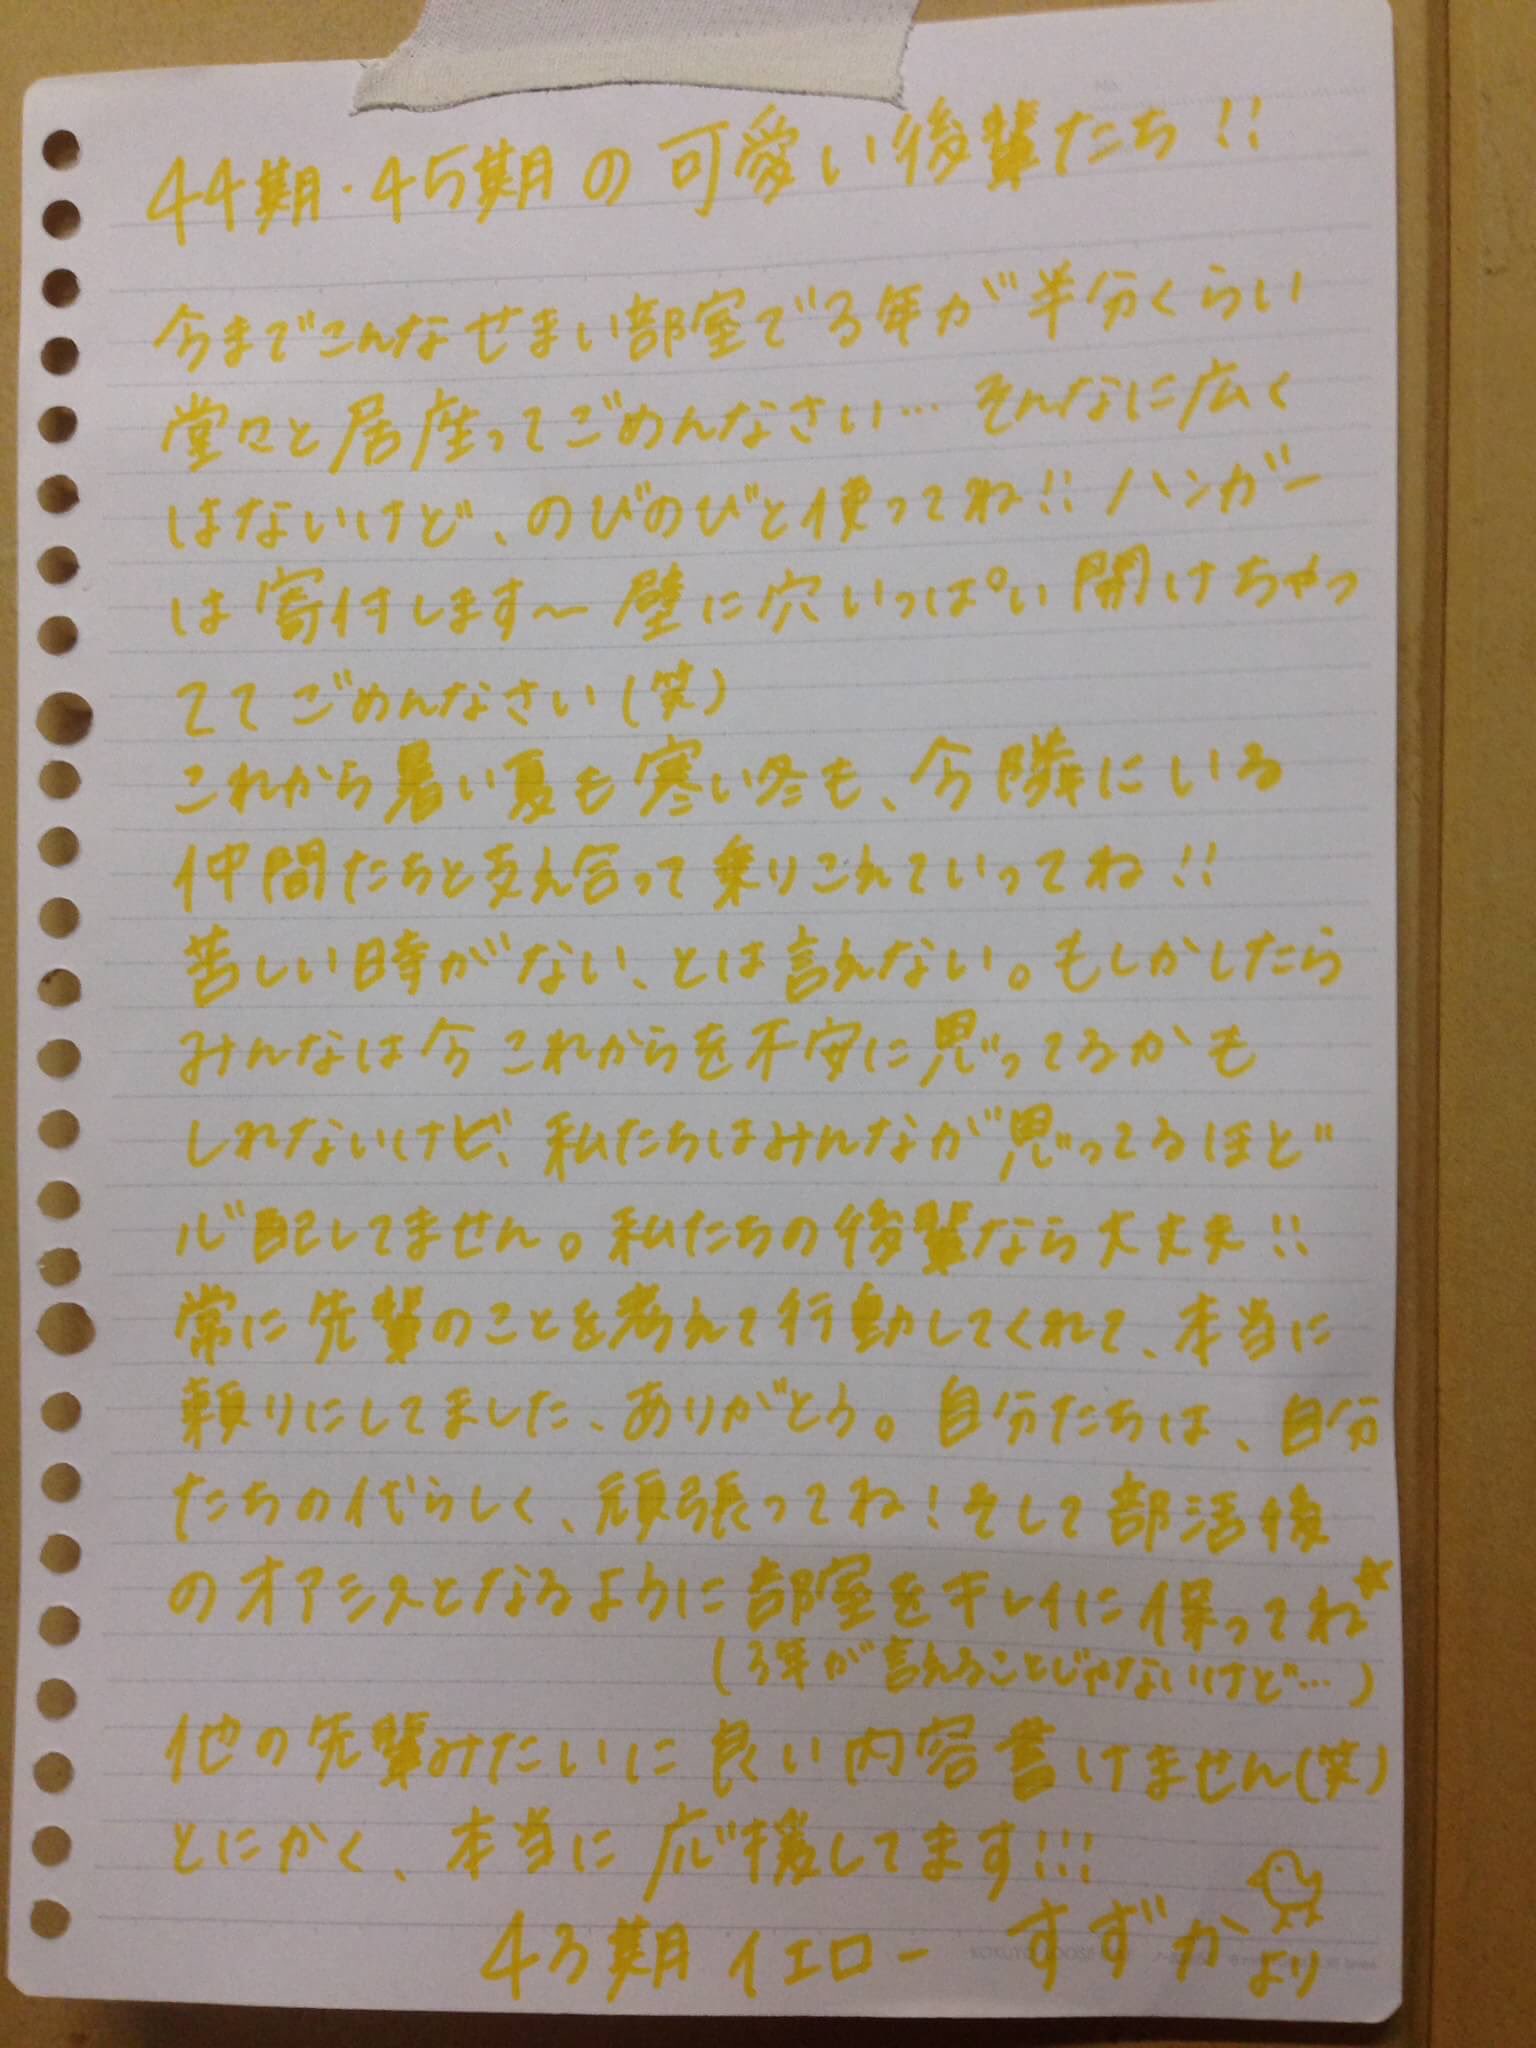 44期・45期の可愛い後輩たち!!
今までこんなせまい部室で3年が半分くらい
堂々と居座ってごめんなさい… そんなに広く
はないけど、のびのびと使ってね!! ハンガー
は寄付します〜 壁に穴いっぱい開けちゃっ
ててごめんなさい(笑)
これから暑い夏も寒い冬も、今隣にいる
仲間たちと支え合って乗りこえていってね!!
苦しい時がない、とは言えない。もしかしたら
みんなは今これからを不安に思ってるかも
しれないけど、私たちはみんなが思ってるほど
心配してません。私たちの後輩なら大丈夫!!
常に先輩のことを考えて行動してくれて、本当に
頼りにしてました、ありがとう。自分たちは、自分
たちの代らしく、頑張ってね!そして部活後
のオアシスとなるように部室をキレイに保ってね☆
(3年が言えることじゃないけど…)
他の先輩みたいに良い内容書けません(笑)
とにかく、本当に応援してます!!!
43期イエロー すずかより